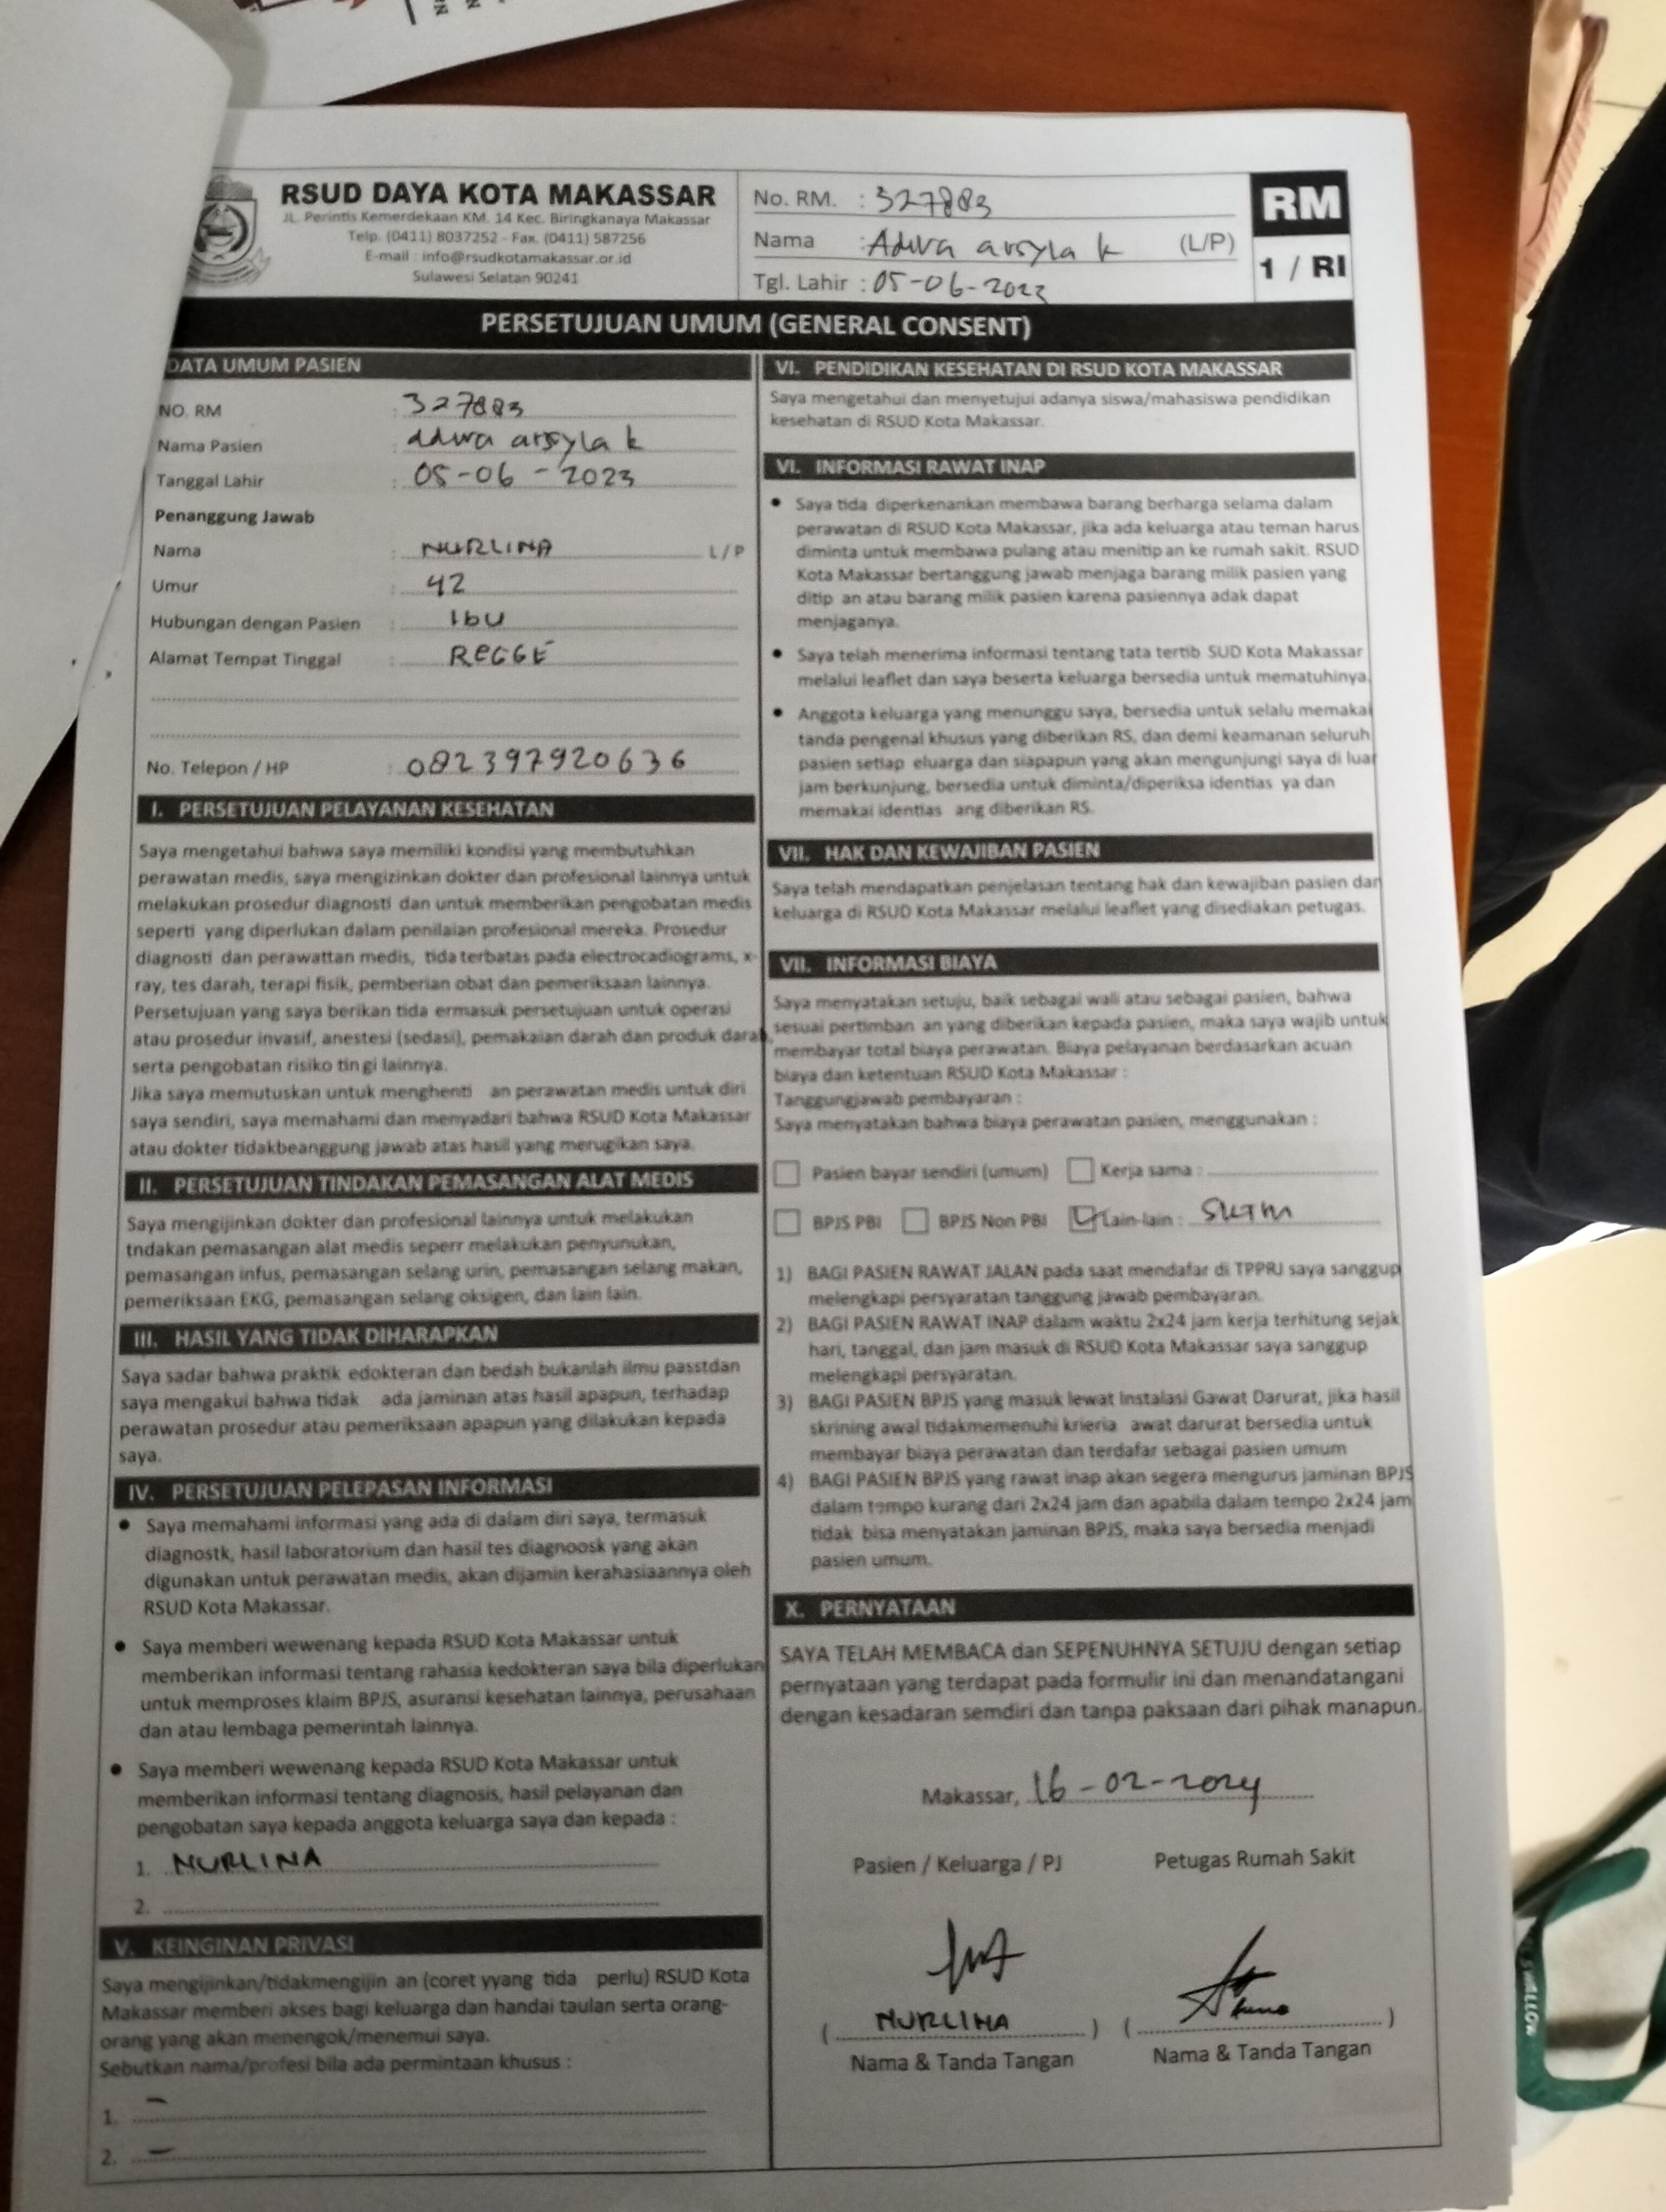 RSUD DAYA KOTA MAKASSAR
JL. Perintis Kemerdekaan KM. 14 Kec. Biringkanaya Makassar
Telp. (0411) 8037252 - Fax. (0411) 587256
E-mail : info@rsudkotamakassar.or.id
Sulawesi Selatan 90241
No. RM. : 327883
Nama : Adwa arsyla k (L/P)
Tgl. Lahir : 05-06-2023
RM
1 / RI
PERSETUJUAN UMUM (GENERAL CONSENT)
DATA UMUM PASIEN
NO. RM : 327883
Nama Pasien : adwa arsyla k
Tanggal Lahir : 05-06-2023
Penanggung Jawab
Nama : NURLINA L/P
Umur : 42
Hubungan dengan Pasien : Ibu
Alamat Tempat Tinggal : REGGE
No. Telepon / HP : 082397920636
I. PERSETUJUAN PELAYANAN KESEHATAN
Saya mengetahui bahwa saya memiliki kondisi yang membutuhkan
perawatan medis, saya mengizinkan dokter dan profesional lainnya untuk
melakukan prosedur diagnosti dan untuk memberikan pengobatan medis
seperti yang diperlukan dalam penilaian profesional mereka. Prosedur
diagnosti dan perawattan medis, tida terbatas pada electrocadiograms, x-
ray, tes darah, terapi fisik, pemberian obat dan pemeriksaan lainnya.
Persetujuan yang saya berikan tida ermasuk persetujuan untuk operasi
atau prosedur invasif, anestesi (sedasi), pemakaian darah dan produk darah,
serta pengobatan risiko tingi lainnya.
Jika saya memutuskan untuk menghenti an perawatan medis untuk diri
saya sendiri, saya memahami dan menyadari bahwa RSUD Kota Makassar
atau dokter tidakbeanggung jawab atas hasil yang merugikan saya.
II. PERSETUJUAN TINDAKAN PEMASANGAN ALAT MEDIS
Saya mengijinkan dokter dan profesional lainnya untuk melakukan
tndakan pemasangan alat medis seperr melakukan penyunukan,
pemasangan infus, pemasangan selang urin, pemasangan selang makan,
pemeriksaan EKG, pemasangan selang oksigen, dan lain lain.
III. HASIL YANG TIDAK DIHARAPKAN
Saya sadar bahwa praktik edokteran dan bedah bukanlah ilmu passtdan
saya mengakui bahwa tidak ada jaminan atas hasil apapun, terhadap
perawatan prosedur atau pemeriksaan apapun yang dilakukan kepada
saya.
IV. PERSETUJUAN PELEPASAN INFORMASI
• Saya memahami informasi yang ada di dalam diri saya, termasuk
diagnostk, hasil laboratorium dan hasil tes diagnoosk yang akan
digunakan untuk perawatan medis, akan dijamin kerahasiaannya oleh
RSUD Kota Makassar.
• Saya memberi wewenang kepada RSUD Kota Makassar untuk
memberikan informasi tentang rahasia kedokteran saya bila diperlukan
untuk memproses klaim BPJS, asuransi kesehatan lainnya, perusahaan
dan atau lembaga pemerintah lainnya.
• Saya memberi wewenang kepada RSUD Kota Makassar untuk
memberikan informasi tentang diagnosis, hasil pelayanan dan
pengobatan saya kepada anggota keluarga saya dan kepada :
1. NURLINA
2.
V. KEINGINAN PRIVASI
Saya mengijinkan/tidakmengijin an (coret yyang tida perlu) RSUD Kota
Makassar memberi akses bagi keluarga dan handai taulan serta orang-
orang yang akan menengok/menemui saya.
Sebutkan nama/profesi bila ada permintaan khusus :
1. -
2. -
VI. PENDIDIKAN KESEHATAN DI RSUD KOTA MAKASSAR
Saya mengetahui dan menyetujui adanya siswa/mahasiswa pendidikan
kesehatan di RSUD Kota Makassar.
VI. INFORMASI RAWAT INAP
• Saya tida diperkenankan membawa barang berharga selama dalam
perawatan di RSUD Kota Makassar, jika ada keluarga atau teman harus
diminta untuk membawa pulang atau menitip an ke rumah sakit. RSUD
Kota Makassar bertanggung jawab menjaga barang milik pasien yang
ditip an atau barang milik pasien karena pasiennya adak dapat
menjaganya.
• Saya telah menerima informasi tentang tata tertib SUD Kota Makassar
melalui leaflet dan saya beserta keluarga bersedia untuk mematuhinya.
• Anggota keluarga yang menunggu saya, bersedia untuk selalu memakai
tanda pengenal khusus yang diberikan RS, dan demi keamanan seluruh
pasien setiap eluarga dan siapapun yang akan mengunjungi saya di luar
jam berkunjung, bersedia untuk diminta/diperiksa identias ya dan
memakai identias ang diberikan RS.
VII. HAK DAN KEWAJIBAN PASIEN
Saya telah mendapatkan penjelasan tentang hak dan kewajiban pasien dan
keluarga di RSUD Kota Makassar melalui leaflet yang disediakan petugas.
VII. INFORMASI BIAYA
Saya menyatakan setuju, baik sebagai wali atau sebagai pasien, bahwa
sesuai pertimban an yang diberikan kepada pasien, maka saya wajib untuk
membayar total biaya perawatan. Biaya pelayanan berdasarkan acuan
biaya dan ketentuan RSUD Kota Makassar :
Tanggungjawab pembayaran :
Saya menyatakan bahwa biaya perawatan pasien, menggunakan :
Pasien bayar sendiri (umum) Kerja sama :
BPJS PBI BPJS Non PBI Lain-lain : SKTM
1) BAGI PASIEN RAWAT JALAN pada saat mendafar di TPPRJ saya sanggup
melengkapi persyaratan tanggung jawab pembayaran.
2) BAGI PASIEN RAWAT INAP dalam waktu 2x24 jam kerja terhitung sejak
hari, tanggal, dan jam masuk di RSUD Kota Makassar saya sanggup
melengkapi persyaratan.
3) BAGI PASIEN BPJS yang masuk lewat Instalasi Gawat Darurat, jika hasil
skrining awal tidakmemenuhi krieria awat darurat bersedia untuk
membayar biaya perawatan dan terdafar sebagai pasien umum
4) BAGI PASIEN BPJS yang rawat inap akan segera mengurus jaminan BPJS
dalam tempo kurang dari 2x24 jam dan apabila dalam tempo 2x24 jam
tidak bisa menyatakan jaminan BPJS, maka saya bersedia menjadi
pasien umum.
X. PERNYATAAN
SAYA TELAH MEMBACA dan SEPENUHNYA SETUJU dengan setiap
pernyataan yang terdapat pada formulir ini dan menandatangani
dengan kesadaran semdiri dan tanpa paksaan dari pihak manapun.
Makassar, 16-02-2024
Pasien / Keluarga / PJ Petugas Rumah Sakit
( NURLINA ) ( )
Nama & Tanda Tangan Nama & Tanda Tangan
SWALLOW